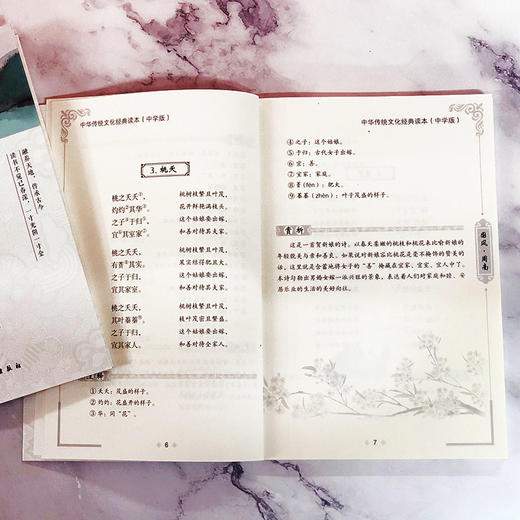 融养天地，传承古今
读书不觉已春深，一寸光阴一寸金
版社
中华传统文化经典读本（中学版）
3. 桃夭
桃之夭夭①， 桃树枝繁且叶茂，
灼灼②其华③。 花开鲜艳满枝头。
之子④于归⑤， 这个姑娘要出嫁，
宜⑥其室家⑦。 和善对待其夫家。
桃之夭夭， 桃树枝繁且叶茂，
有蕡⑧其实。 果实结得肥且大。
之子于归， 这个姑娘要出嫁，
宜其家室。 和善对待其夫家。
桃之夭夭， 桃树枝繁且叶茂，
其叶蓁蓁⑨。 枝叶茂密且繁盛。
之子于归， 这个姑娘要出嫁，
宜其家人。 和善对待全家人。
注释
①夭夭：茂盛的样子。
②灼灼：花盛开的样子。
③华：同“花”。
6
中华传统文化经典读本（中学版）
④之子：这个姑娘。
⑤于归：古代女子出嫁。
⑥宜：善。
⑦室家：家庭。
⑧蕡（fén）：肥大。
⑨蓁蓁（zhēn）：叶子茂盛的样子。
赏析
这是一首贺新娘的诗。以春天柔嫩的桃枝和桃花来比喻新娘的
年轻貌美与贵和善良。如果说对新娘容比桃花是毫不掩饰的赞美的
话，这里就是含蓄地将女子的“善”掩藏在宜家、宜室、宜人中了。
本诗与勒出首婚女嫁一派兴旺的景象，表达着人们对家庭和睦、安
居乐业的生活的美好向往。
国风·周南
7